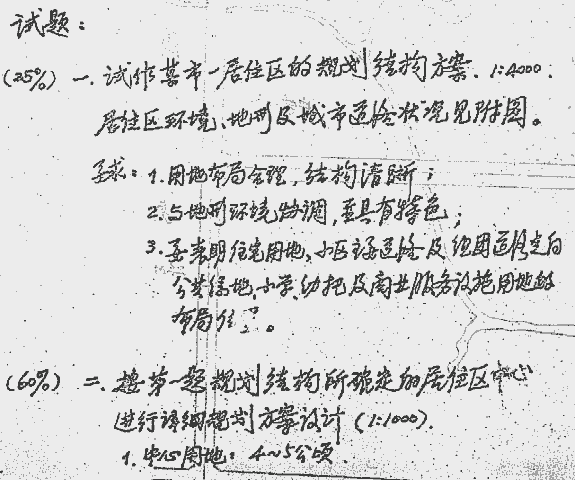 试题：
(25%) 一. 试作某市一居住区的规划结构方案. 1:4000.
居住区环境、地形及城市道路状况见附图。
要求: 1. 用地布局合理, 结构清晰;
2. 与地形环境协调, 要具有特色;
3. 要表明住宅用地、小区主要道路及组团道路走向
公共绿地、小学、幼托及商业服务设施用地的
布局位置。
(60%) 二. 按第一题规划结构所确定的居住区中心
进行详细规划方案设计 (1:1000).
1. 中心用地: 4~5公顷.